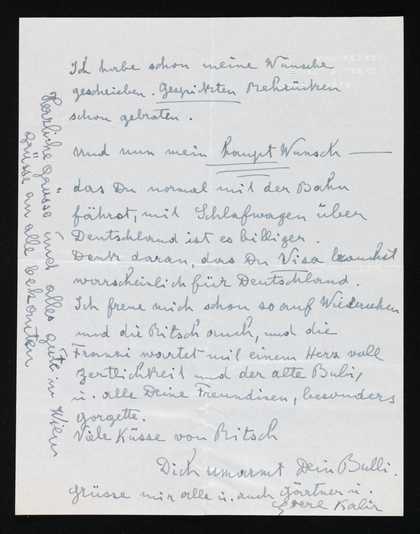 Ich habe schon meine Wünsche
geschrieben. Gespickten Rehrücken
schon gebraten.
und nun mein Haupt Wunsch —
das Du normal mit der Bahn
fährst, mit Schlafwagen über
Deutschland ist es billiger.
Denk daran, das Du Visa brauchst
warscheinlich für Deutschland.
Ich freue mich schon so auf Wiedersehen
und die Ritsch auch, und die
Franzi wartet mit einem Herz voll
Zertlichkeit und der alte Bubi,
u. alle Deine Freundinen, besonders
Gorgette.
Viele Küsse von Ritsch
Dich umarmt Dein Bulli.
Grüsse mir alle u. auch Gärtner u.
Kalir
Herzliche Grüsse und alles gute in Wien
Grüsse an alle bekannten